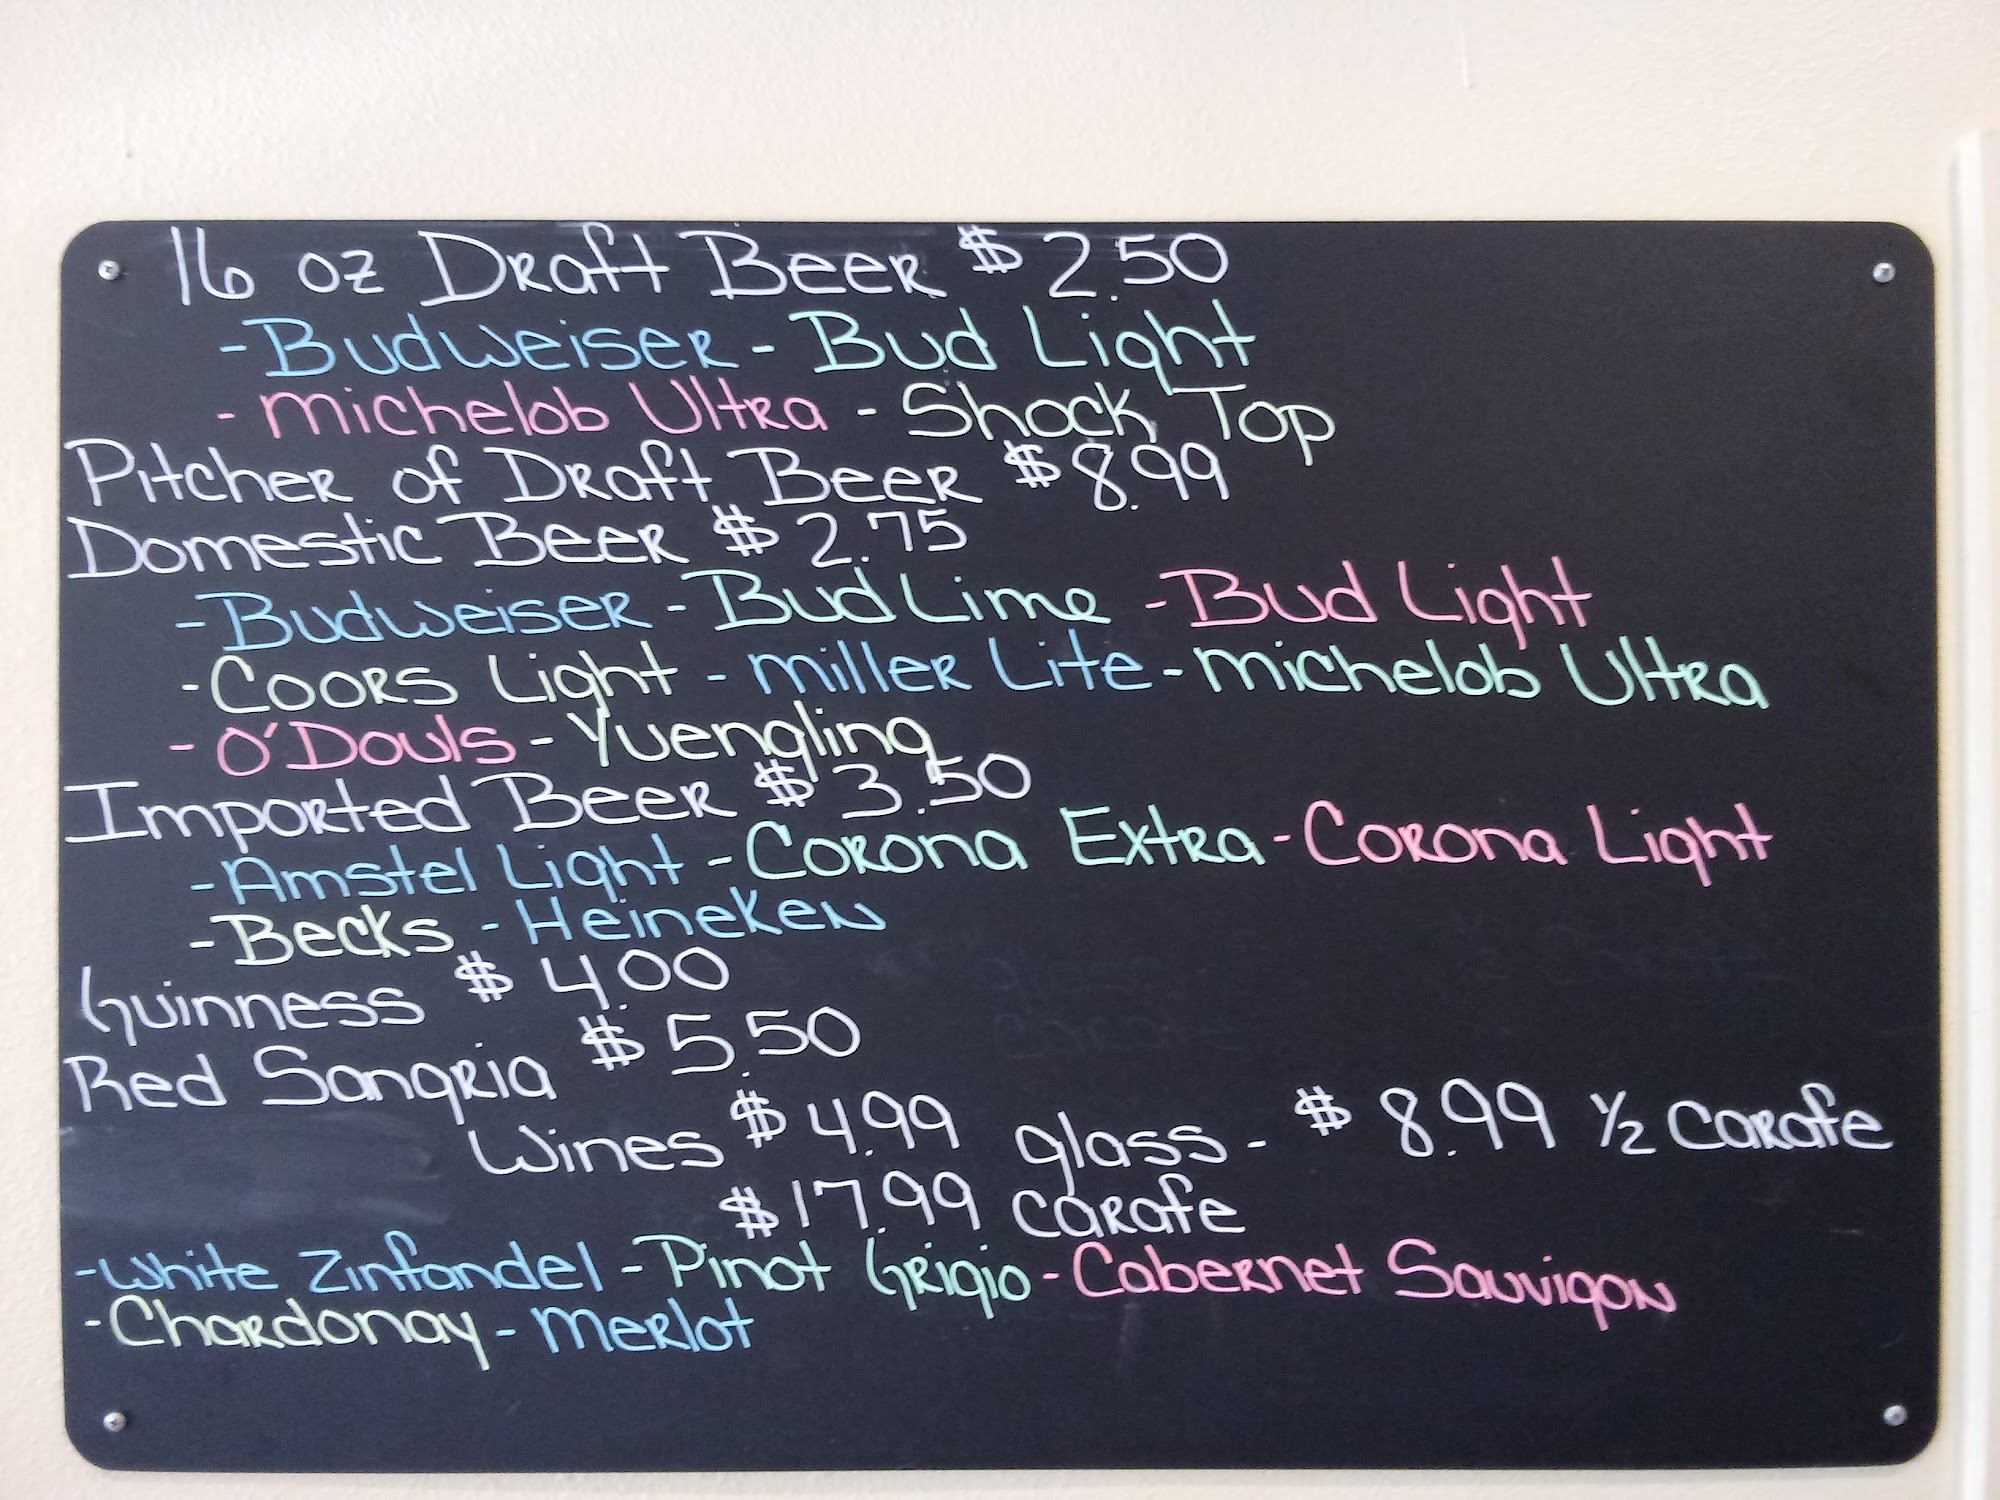 16 oz Draft Beer $2.50
- Budweiser - Bud Light
- Michelob Ultra - Shock Top
Pitcher of Draft Beer $8.99
Domestic Beer $2.75
- Budweiser - Bud Lime - Bud Light
- Coors Light - Miller Lite - Michelob Ultra
- O'Douls - Yuengling
Imported Beer $3.50
- Amstel Light - Corona Extra - Corona Light
- Becks - Heineken
Guinness $4.00
Red Sangria $5.50
Wines $4.99 glass - $8.99 1/2 carafe
$17.99 carafe
- White Zinfandel - Pinot Grigio - Cabernet Sauvigon
- Chardonay - Merlot